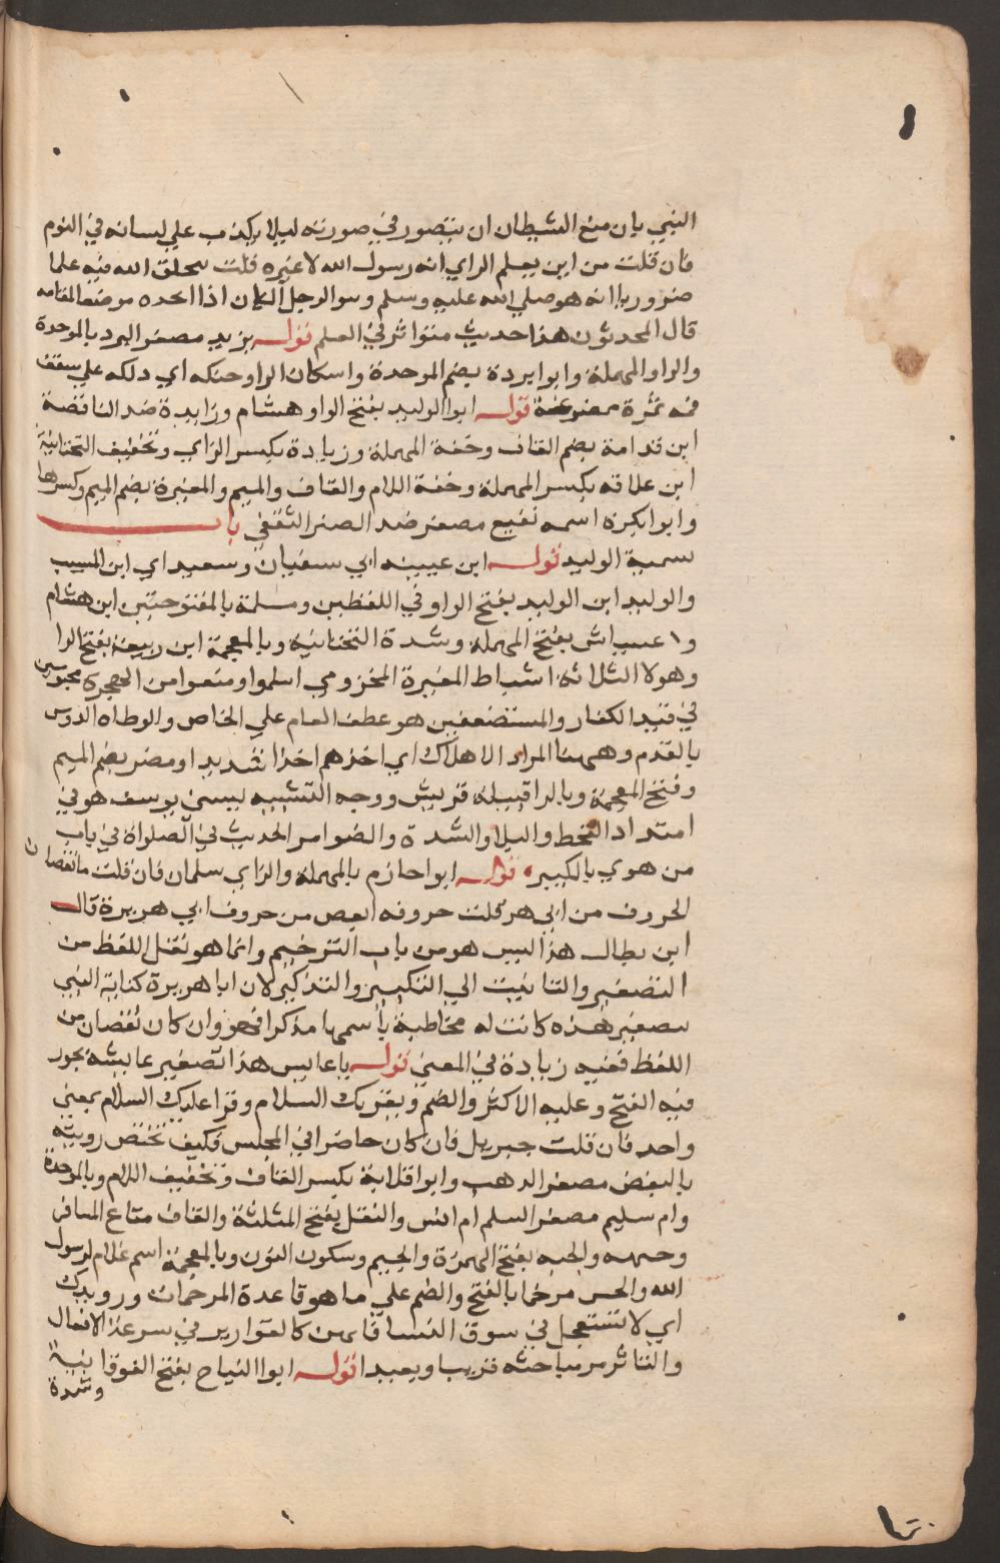 النبي بان منع الشيطان ان يتصور في صورته ليلا يكذب علي لسانه في النوم
فان قلت من اين يعلم الراي انه رسول الله لا غيره قلت يخلق الله فيه علما
ضروريا انه هو صلي الله عليه وسلم
قال المحدثون هذا حديث متواتر في العلم قوله بريد مصغر البرد بالموحدة
والراو المهملة وابوا بردة بضم الموحدة واسكان الراو حنكه اي دلكه علي سقف
فمه تمرة ممضوغة قوله ابوا الوليد بفتح الواو هشام وزايدة ضد الناقصة
ابن قدامة بضم القاف وخفة المهملة وزيادة بكسر الزاي وتخفيف التحتانية
ابن علاقه بكسر المهملة وخفة اللام والقاف والميم والمغيرة بضم الميم وكسرها
وابوا بكرة اسمه نفيع مصغر ضد الضر الثقفي باب
سمية الوليد قوله ابن عيينه اي سفيان وسعيد اي ابن المسيب
والوليد ابن الوليد بفتح الواو في اللفظين وسلمة بالمفتوحتين ابن هشام
وا عياش بفتح المهملة وشدة التحتانية وبالمعجمة ابن ربيعة بفتح الرا
وهولا الثلاثة اسباط المغيرة المخزومي اسلموا ومنعوا من الهجرة محبوسين
في قيد الكفار والمستضعفين هو عطف العام علي الخاص والوطاه الدوس
بالقدم وههنا المراد الاهلاك اي اخذهم اخذا شديدا ومضر بضم الميم
وفتح المعجمة وبالرا قبيلة قريش ووجه التشبيه بسني يوسف هو في
امتداد القحط والبلا والشدة والضوا مر الحديث في الصلواة في باب
من هوي بالكبير قوله ابوا حازم بالمهملة والزاي سلمان فان قلت ما نقصان
الحروف من ابي هر قلت حروفه انقص من حروف ابي هريرة قال
ابن بطال هذا ليس هو من باب الترخيم وانما هو نقل اللفظ من
التصغير والتانيث الي التكبير والتذكير لان ابا هريرة كناية النبي
بتصغير هذه كانت له مخاطبة باسمها مذكرا فهو وان كان نقصان من
اللفظ ففيه زيادة في المعني قوله ياعايس هذا تصغير عايشة يجوز
فيه الفتح وعليه الاكثر والضم ويقريك السلام وقرا عليك السلام بمعني
واحد فان قلت جبريل فان كان حاضرا في المجلس فكيف تختص رويته
بالبعض مصغر الدهب وابوا قلابة بكسر القاف وتخفيف اللام وبالموحدة
وام سليم مصغر السلم ام انس والثقل بفتح المثلثة والقاف متاع المسافر
وحسمه وانجشه بفتح الهمزة والجيم وسكون النون وبالمعجمة اسم غلام لرسول
الله والحس مرخما بالفتح والضم علي ما هو قاعدة المرخمات ورويدك
اي لا تستعجل في سوق النسا فانهن كالقوارير في سرعة الانفعال
والتاثر مر مباحثه قريبا وبعيدا قوله ابوا التياح بفتح الفوقانية
وشدة